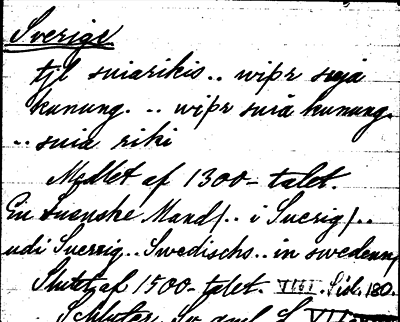 Sverige
til suiarikis.. wiþr suja
kunung. .. wiþr suiä kunung.
.. suia riki
Medlet af 1300-talet.
En suenske Mand/.. i Suerig/..
udi Suerrig..Swedischs..in swedenn/
Slutet af 1500-talet. VIGI. Sid. 180.
Schlyter, Sv.